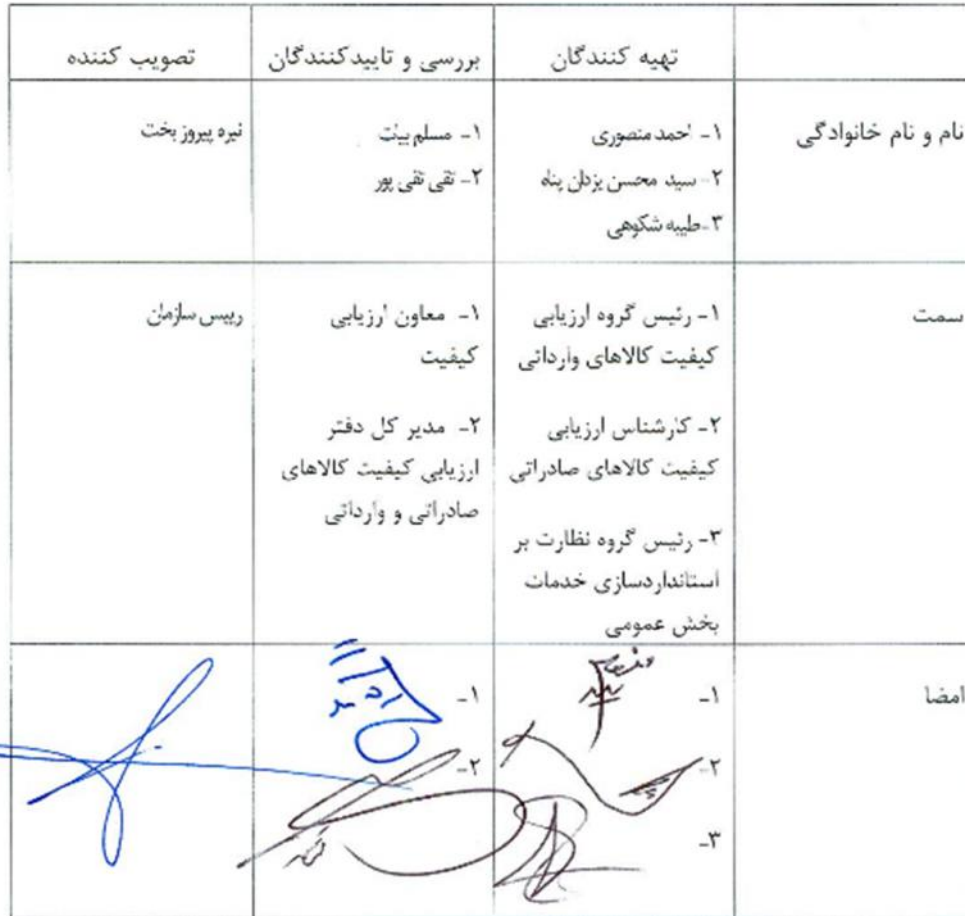 تهیه کنندگان
بررسی و تاییدکنندگان
تصویب کننده
نام و نام خانوادگی
۱- احمد منصوری
۲- سید محسن یزدان پناه
۳-طیبه شکوهی
۱- مسلم بیات
۲- تقی تقی پور
نیره پیروزبخت
سمت
۱- رئیس گروه ارزیابی
کیفیت کالاهای وارداتی
۲- کارشناس ارزیابی
کیفیت کالاهای صادراتی
۳- رئیس گروه نظارت بر
استانداردسازی خدمات
بخش عمومی
۱- معاون ارزیابی
کیفیت
۲- مدیر کل دفتر
ارزیابی کیفیت کالاهای
صادراتی و وارداتی
رییس سازمان
امضا
۱-
۲-
۳-
۱-
۲-